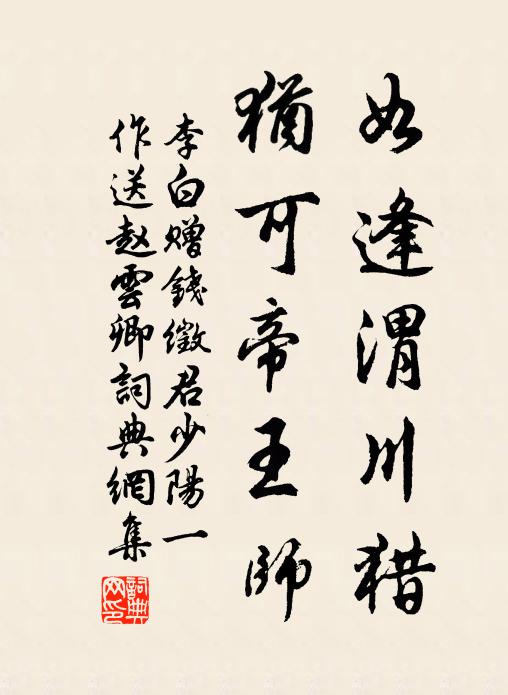 如逢渭川猎
猶可帝王師
李白赠錢徵君少陽一
作送赵雲卿詞典網集
詞典网印